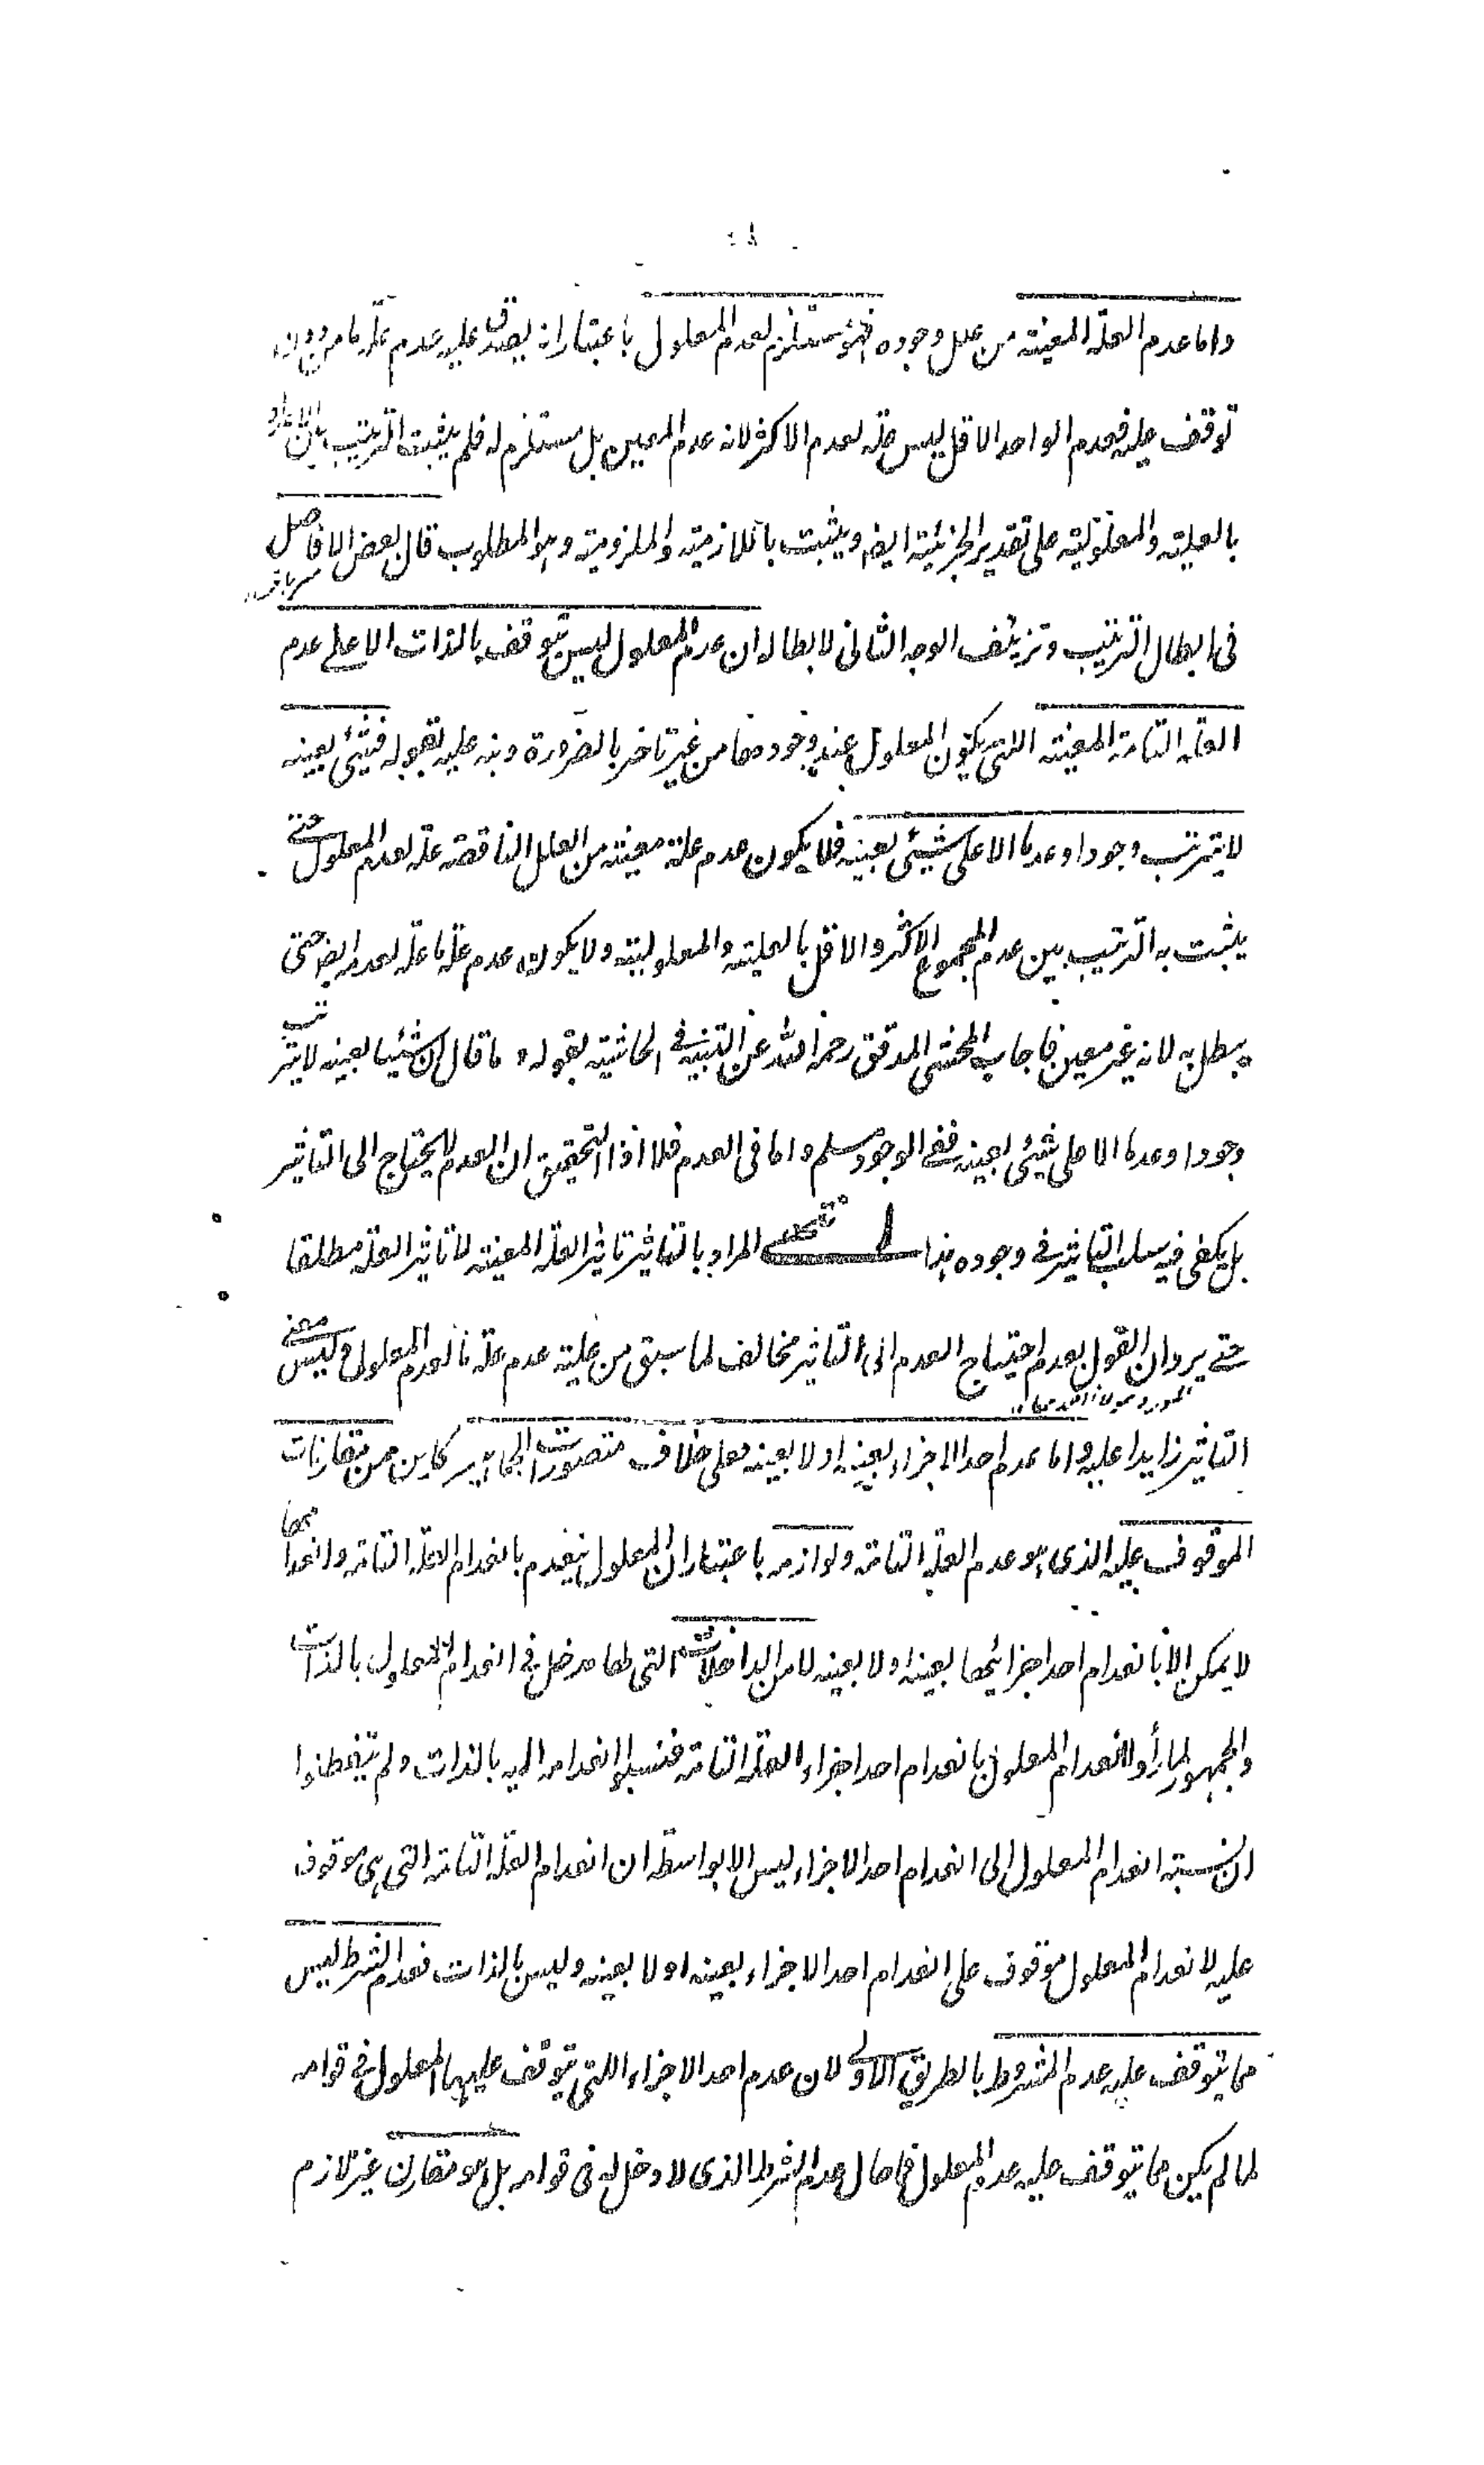 واما عدم العلة المعينة من علل وجوده فهو مستلزم لعدم المعلول باعتبار انه يصدق عليه عدم علة ما من دون
توقف عليه فعدم الواحد الاقل ليس علة لعدم الاكثر لانه عدم المعين بل مستلزم له فلم يثبت الترتيب بين
بالعلية والمعلولية على تقدير الجزئية ايضا ويثبت باللازمية والملزومية وهو المطلوب قال بعض الافاضل
فى ابطال الترتيب وتزئيف الوجه الثانى لابطاله ان عدم المعلول ليس يتوقف بالذات الا على عدم
العلة التامة المعينة اللتى يكون المعلول عند وجودها من غير تاخر بالضرورة ونبه عليه بقوله فشيئى بعينه
لا يترتب وجودا وعدما الا على شيئى بعينه فلا يكون عدم علة معينة من العلل الناقصة علة لعدم المعلول حتى
يثبت به الترتيب بين عدم المجموع الاكثر والاقل بالعلية والمعلولية ولا يكون عدم علة ما علة لعدمه ايضا حتى
يبطل به لانه غير معين فاجاب المحشى المدقق رحمه الله عن التنبيه فى الحاشية بقوله وما قال ان شيئيا بعينه لا يترتب
وجودا وعدما الا على شيئى بعينه ففى الوجود مسلم واما فى العدم فلا اذ التحقيق ان العدم لا يحتاج الى التاثير
بل يكفى فيه سلب التاثير فى وجوده هذا انتهى المراد بالتاثير تاثير العلة المعينة لا تاثير العلة مطلقا
حتى يرد ان القول بعدم احتياج العدم الى التاثير مخالف لما سبق من علية عدم علة ما لعدم المعلول وليس معنى
التاثير زايدا عليه واما عدم احد الاجزاء بعينه او لا بعينه فعلى خلاف متصورات الجماهير كاين من مقارنات
الموقوف عليه الذى هو عدم العلة التامة ولوازمه باعتبار ان المعلول ينعدم بانعدام العلة التامة وانعدامها
لا يمكن الا بانعدام احد اجزائيها بعينه او لا بعينه لا من الداخلات التى لها مدخل فى انعدام المعلول بالذات
والجمهور لما رأوا انعدام المعلول بانعدام احد اجزاء العلة التامة فنسبوا انعدامه اليه بالذات ولم يتفطنوا
ان نسبة انعدام المعلول الى انعدام احد الاجزاء ليس الا بواسطة ان انعدام العلة التامة التى هى موقوف
عليه لانعدام المعلول موقوف على انعدام احد الاجزاء بعينه او لا بعينه وليس بالذات فعدم الشرط ليس
مما يتوقف عليه عدم المشروط بالطريق الاولى لان عدم احد الاجزاء اللتى يتوقف عليها المعلول فى قوامه
لما لم يكن مما يتوقف عليه عدم المعلول فما حال عدم الشرط الذى لا دخل له فى قوامه بل هو مقارن غير لازم